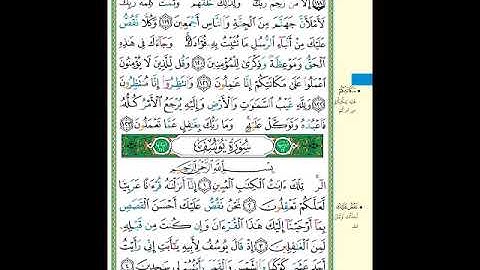 إِلَّا مَن رَّحِمَ رَبُّكَ وَلِذَٰلِكَ خَلَقَهُمْ وَتَمَّتْ كَلِمَةُ رَبِّكَ
لَأَمْلَأَنَّ جَهَنَّمَ مِنَ الْجِنَّةِ وَالنَّاسِ أَجْمَعِينَ ١١٩ وَكُلًّا نَّقُصُّ
عَلَيْكَ مِنْ أَنبَاءِ الرُّسُلِ مَا نُثَبِّتُ بِهِ فُؤَادَكَ وَجَاءَكَ فِي هَٰذِهِ
الْحَقُّ وَمَوْعِظَةٌ وَذِكْرَىٰ لِلْمُؤْمِنِينَ ١٢٠ وَقُل لِّلَّذِينَ لَا يُؤْمِنُونَ
اعْمَلُوا عَلَىٰ مَكَانَتِكُمْ إِنَّا عَامِلُونَ ١٢١ وَانتَظِرُوا إِنَّا مُنتَظِرُونَ
١٢٢ وَلِلَّهِ غَيْبُ السَّمَاوَاتِ وَالْأَرْضِ وَإِلَيْهِ يُرْجَعُ الْأَمْرُ كُلُّهُ
فَاعْبُدْهُ وَتَوَكَّلْ عَلَيْهِ وَمَا رَبُّكَ بِغَافِلٍ عَمَّا تَعْمَلُونَ ١٢٣
سُورَةُ يُوسُفَ
بِسْمِ اللَّهِ الرَّحْمَٰنِ الرَّحِيمِ
الر تِلْكَ آيَاتُ الْكِتَابِ الْمُبِينِ ١ إِنَّا أَنزَلْنَاهُ قُرْآنًا عَرَبِيًّا
لَّعَلَّكُمْ تَعْقِلُونَ ٢ نَحْنُ نَقُصُّ عَلَيْكَ أَحْسَنَ الْقَصَصِ
بِمَا أَوْحَيْنَا إِلَيْكَ هَٰذَا الْقُرْآنَ وَإِن كُنتَ مِن قَبْلِهِ
لَمِنَ الْغَافِلِينَ ٣ إِذْ قَالَ يُوسُفُ لِأَبِيهِ يَا أَبَتِ إِنِّي رَأَيْتُ
أَحَدَ عَشَرَ كَوْكَبًا وَالشَّمْسَ وَالْقَمَرَ رَأَيْتُهُمْ لِي سَاجِدِينَ ٤